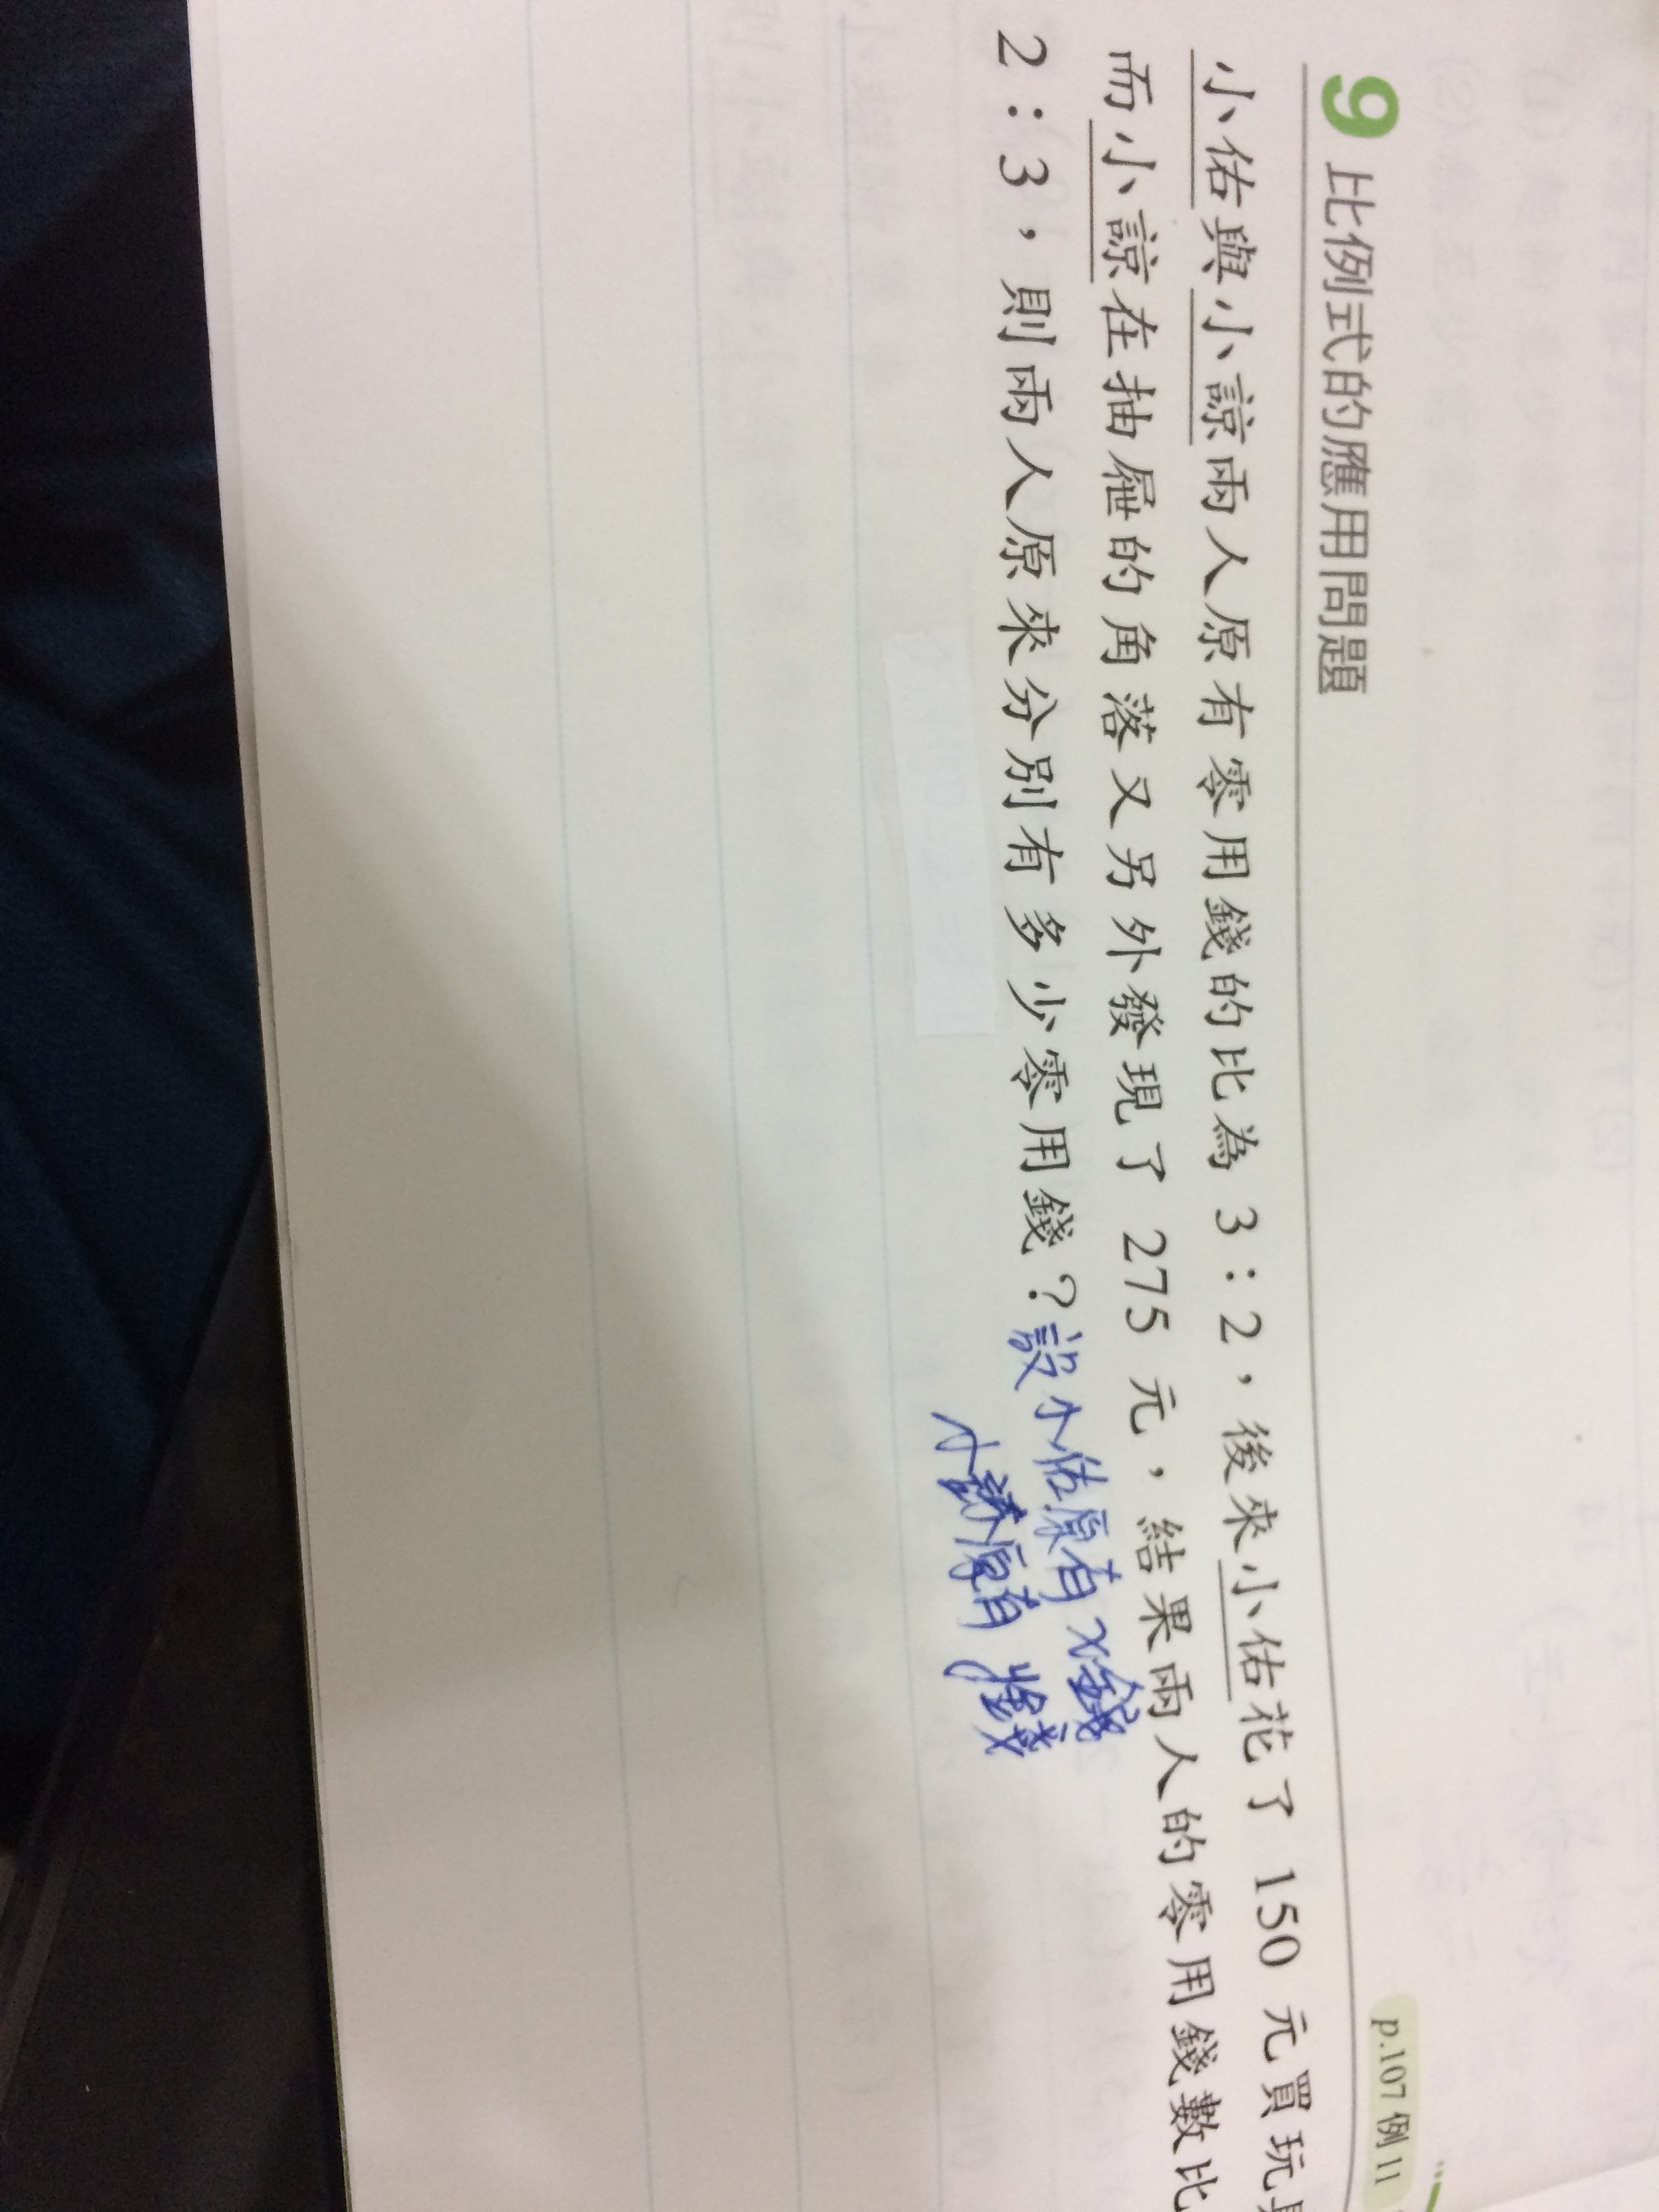 9 比例式的應用問題
p.107 例 11
小佑與小諒兩人原有零用錢的比為 3：2，後來小佑花了 150 元買玩具
而小諒在抽屜的角落又另外發現了 275 元，結果兩人的零用錢數比
2：3，則兩人原來分別有多少零用錢？設小佑原有 x錢
小諒原有 錢